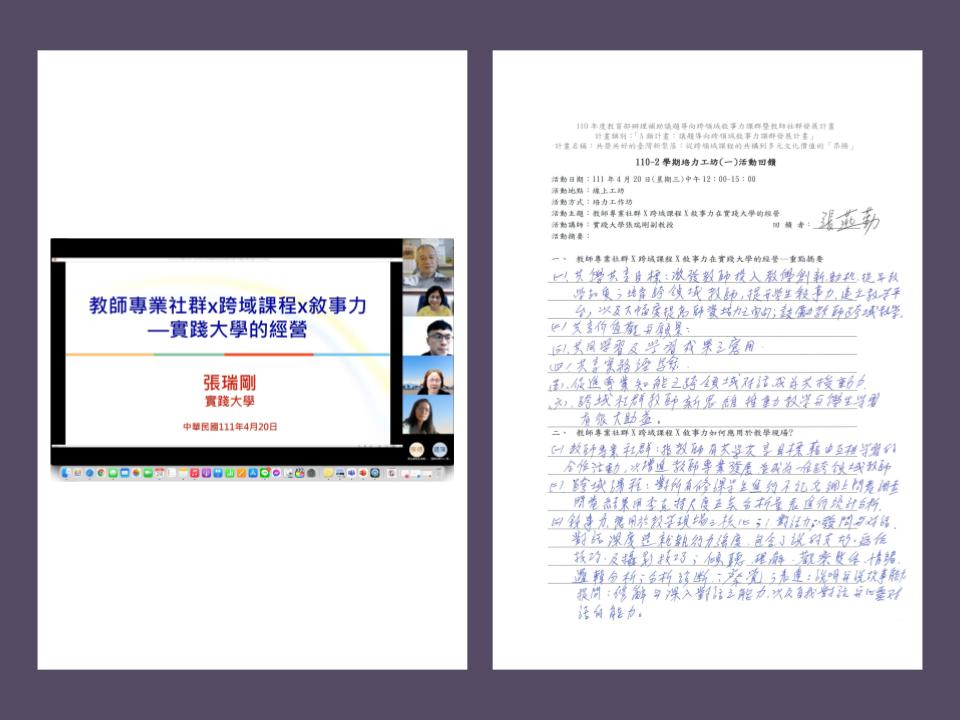 教師專業社群x跨域課程x敘事力
—實踐大學的經營
張瑞剛
實踐大學
中華民國111年4月20日
110年度教育部辦理補助議題導向跨領域敘事力課群暨教師社群發展計畫
計畫類別：「A類計畫：議題導向跨領域敘事力課群發展計畫」
計畫名稱：共榮共好的臺灣新聚落：從跨領域課程的共構到多元文化價值的「島播」
110-2學期培力工坊(一)活動回饋
活動日期：111年4月20日(星期三)中午12：00-15：00
活動地點：線上工坊
活動方式：培力工作坊
活動主題：教師專業社群X跨域課程X敘事力在實踐大學的經營
活動講師：實踐大學張瑞剛副教授 回饋者：張燕勤
活動摘要：
一、 教師專業社群X跨域課程X敘事力在實踐大學的經營—重點摘要
(一)、共學共享目標：激發教師投入教學創新動機，提升教
跨領域教師，提升學生敘事力，建立教學平
台，以及大幅度提高師資培力之面向；鼓勵教師跨域教學。
(二)、共享價值觀與願景：
(三)、共同學習及學習成果之應用．
(四)、共享實務
(五)、促進專業知能之跨領域對話成為共授動力．
(六)、跨域社群教師新思維推動教學與學生學習
有很大助益。
二、 教師專業社群X跨域課程X敘事力如何應用於教學現場?
(一)教師專業社群：指教師有共學共享目標藉由互相學習的
合作活動，以增進教師專業發展並成為一位跨領域教師
(二)跨域課程：對所有修課學生進行不記名網上問卷調查
問卷結果用李克特尺度五等分析量表進行統計分析．
(三)敘事力應用於教學現場之核心：1.對話力：發問與對話，
對話深度
技巧及攝影技巧；傾聽、理解、觀察關係、情緒、
邏輯分析；分析診斷；察覺；表達：說明與說故事能力
提問：修辭與深入對話之能力，以及自我對話與心靈對
話的能力。